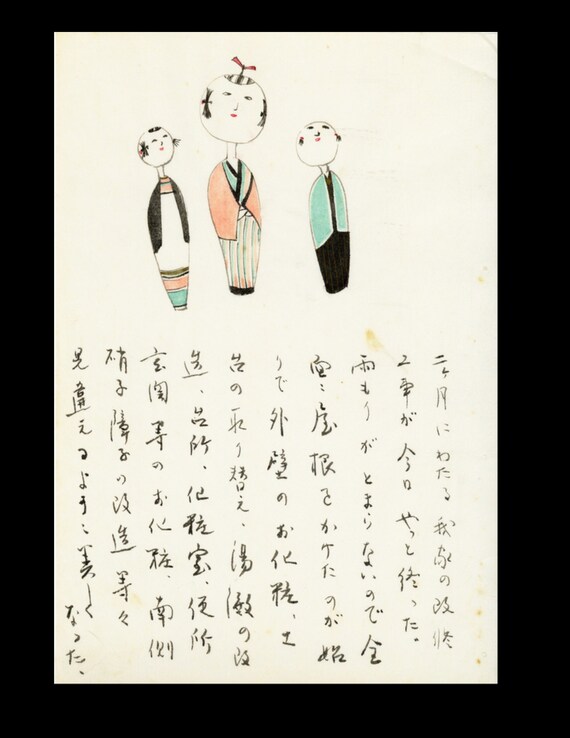 二ヶ月にわたる我家の改修
工事が今日やっと終った。
雨もりがとまらないので全
面に屋根をかけたのが始
りで外壁のお化粧、土
台の取り替え、湯殿の改
造、台所、化粧室、便所
玄関等のお化粧、南側
硝子障子の改造等々
見違えるように美しく
なった、